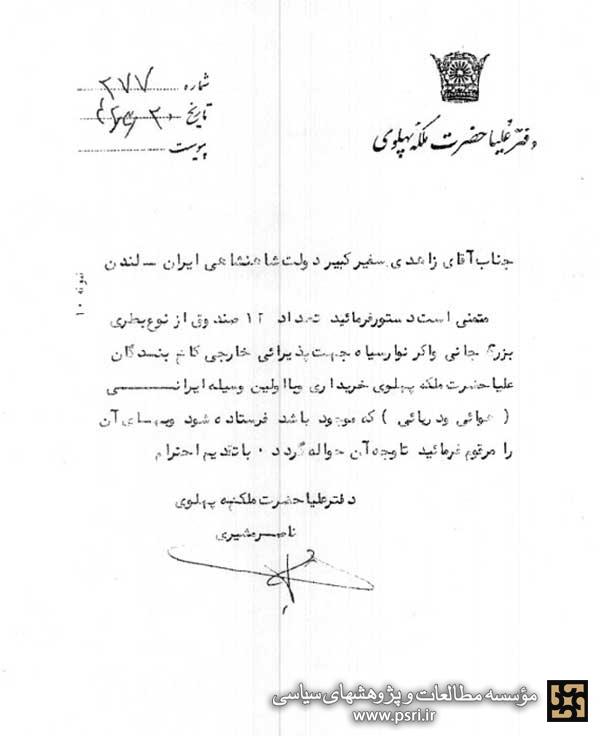 شماره ۲۷۷
تاریخ
پیوست
دفتر علیاحضرت ملکه پهلوی
جناب آقای زاهدی سفیر کبیر دولت شاهنشاهی ایران – لندن
نمونه ۱۰
متمنی است دستور فرمائید تعداد ۱۲ صندوق از نوع بطری
بزرگ جانی واکر نوار سیاه جهت پذیرائی خارجی کاخ بندگان
علیاحضرت ملکه پهلوی خریداری وبا اولین وسیله ایرانی
( هوائی ودریائی ) که موجود باشد فرستاده شود وبهای آن
را مرقوم فرمائید تا وجه آن حواله گردد . با تقدیم احترام
دفتر علیاحضرت ملکه پهلوی
ناصر مشیری
مؤسسه مطالعات و پژوهشهای سیاسی
www.psri.ir